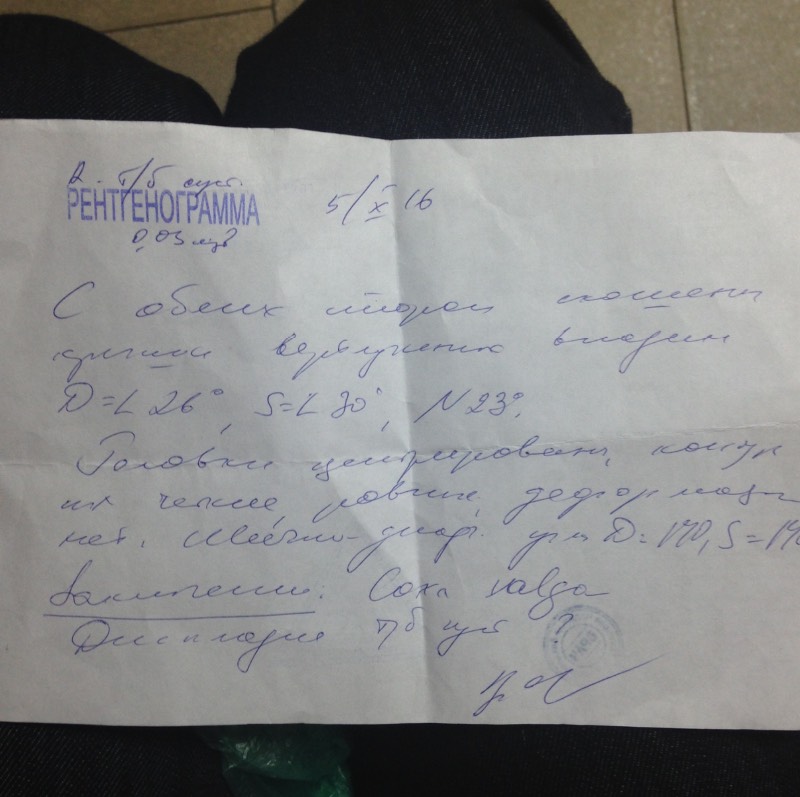 R. т/б суст.
РЕНТГЕНОГРАММА
0,03 мзв
5/X 16
С обеих сторон скошены
крыши вертлужных впадин
D=L 26°, S=L 30°, N 23°.
Головки центрированы, конту
ры четкие, ровные, деформаци
нет. Шеечно-диаф. углы D=140, S=140
Заключение: Coxa valga
Дисплазия т/б суст ?